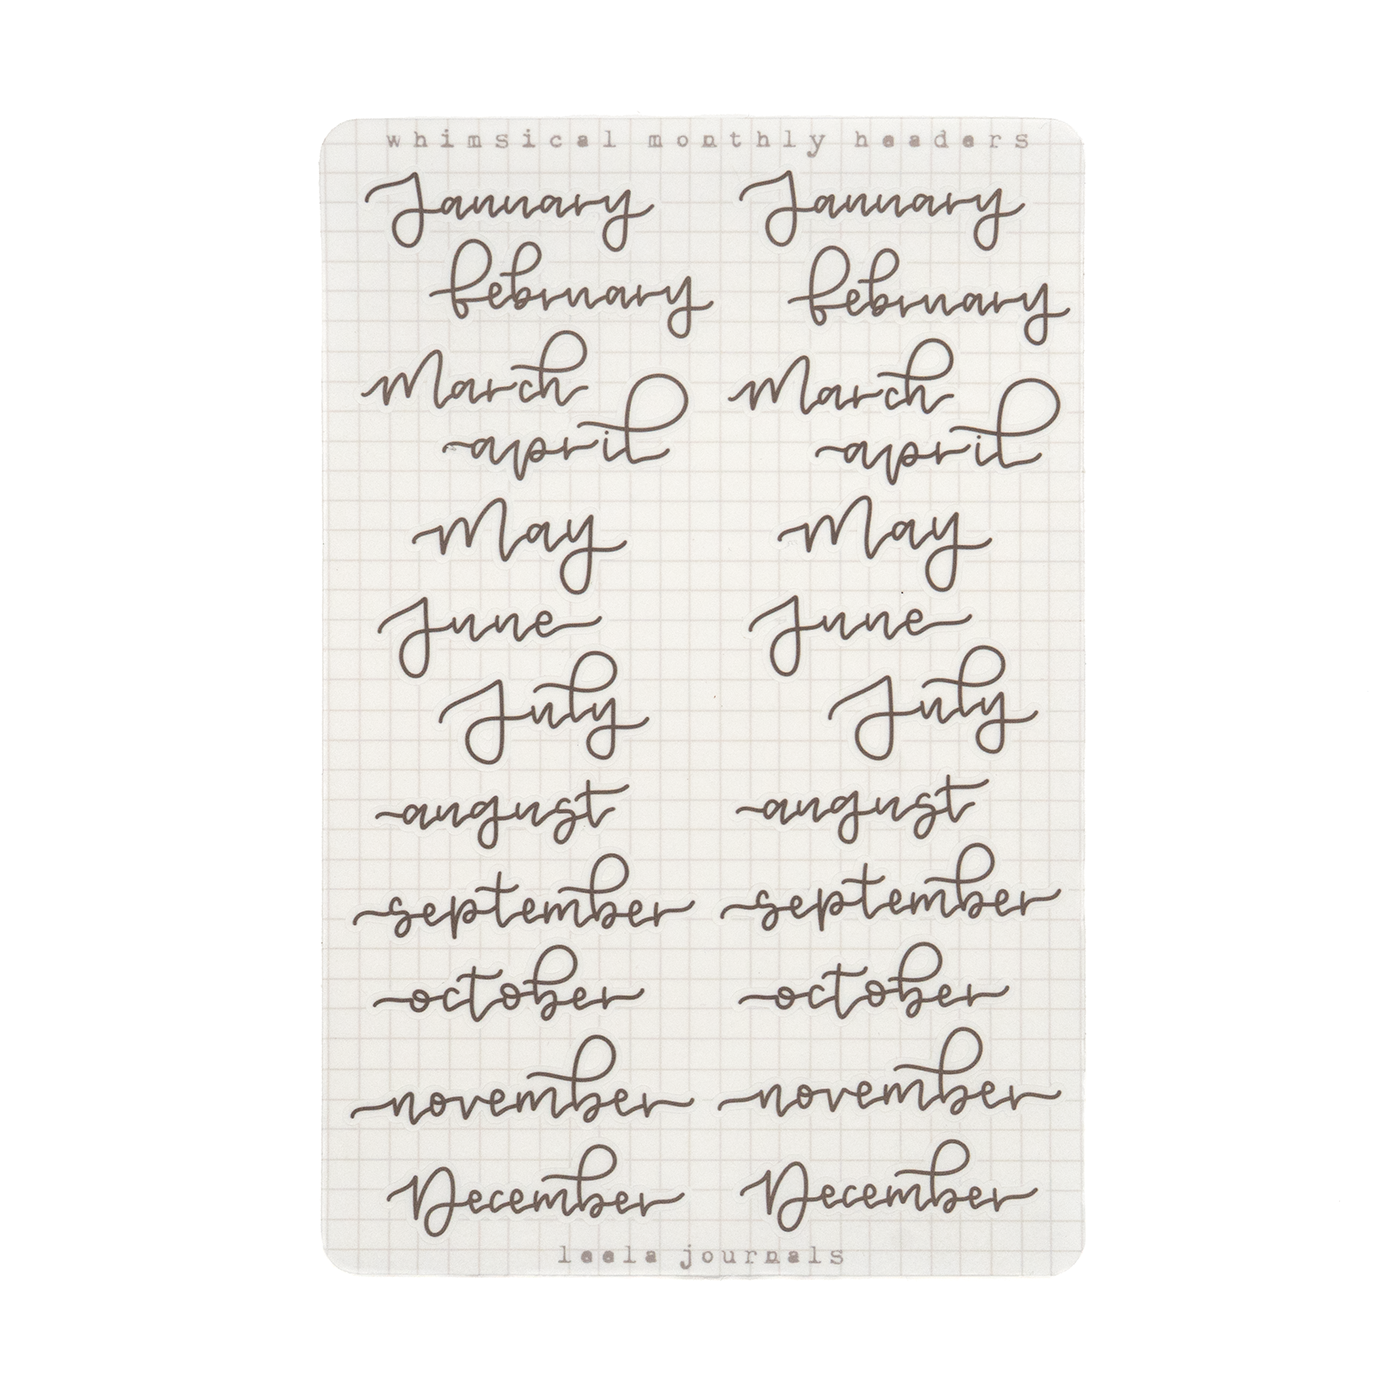 whimsical monthly headers
January January
february february
March March
april april
May May
June June
July July
august august
september september
october october
november november
December December
leela journals